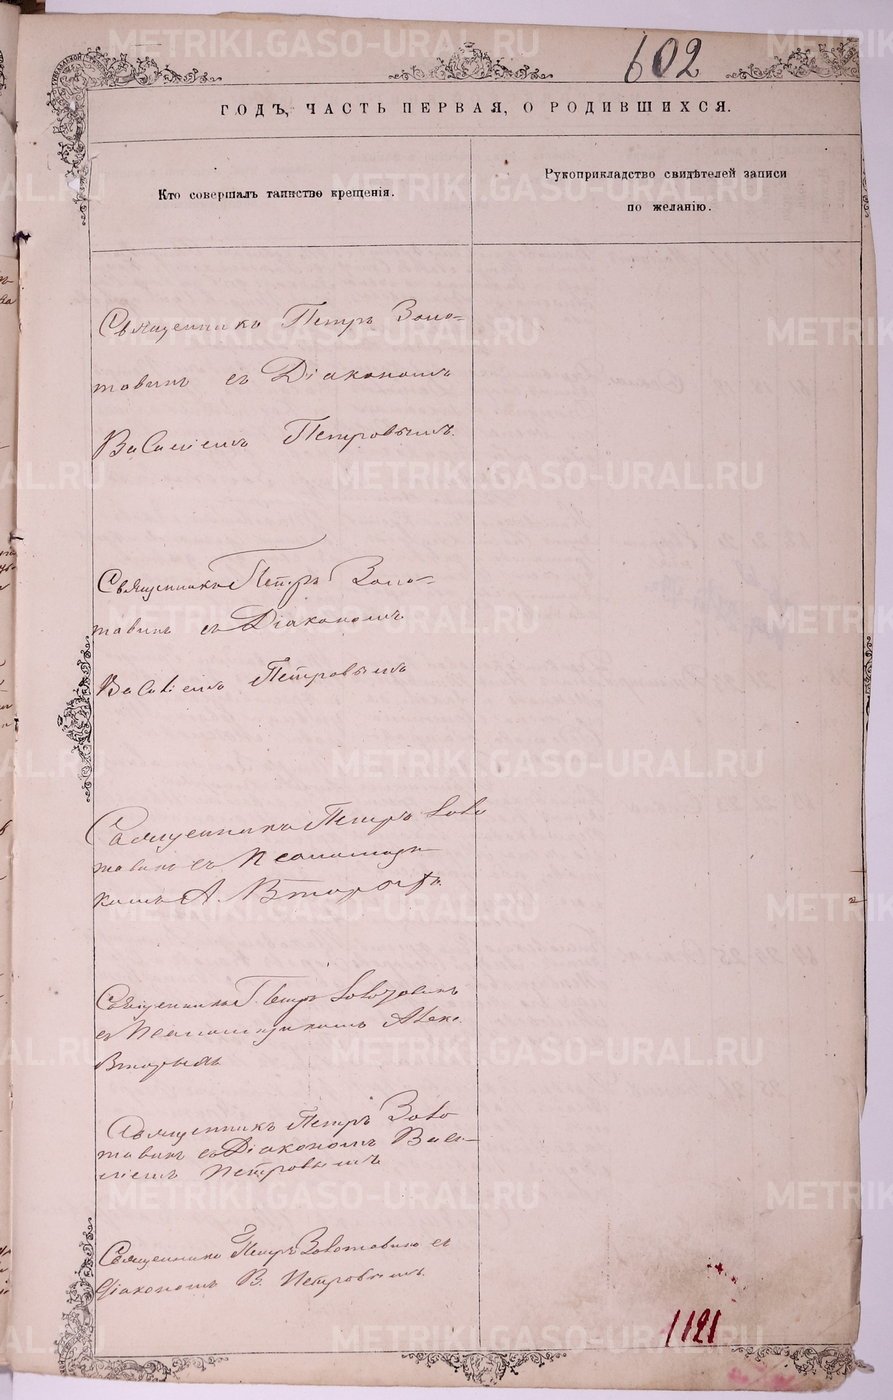 602
ГОДЪ, ЧАСТЬ ПЕРВАЯ, О РОДИВШИХСЯ.
Кто совершалъ таинство крещенія.
Рукоприкладство свидѣтелей записи
по желанію.
Священникъ Петръ Золо-
тавинъ съ Діакономъ
Василіемъ Петровымъ.
Священникъ Петръ Золо-
тавинъ съ Діакономъ
Василіемъ Петровымъ
Священникъ Петръ Золо
тавинъ съ Псаломщи-
комъ А.
Священникъ Петръ Золотавинъ
съ Псаломщикомъ Алек.
Вторымъ
Священникъ Петръ Золо
тавинъ съ Діакономъ Васи-
ліемъ Петровымъ
Священникъ Петръ Золотавинъ съ
Діакономъ В. Петровымъ.
1121
METRIKI.GASO-URAL.RU